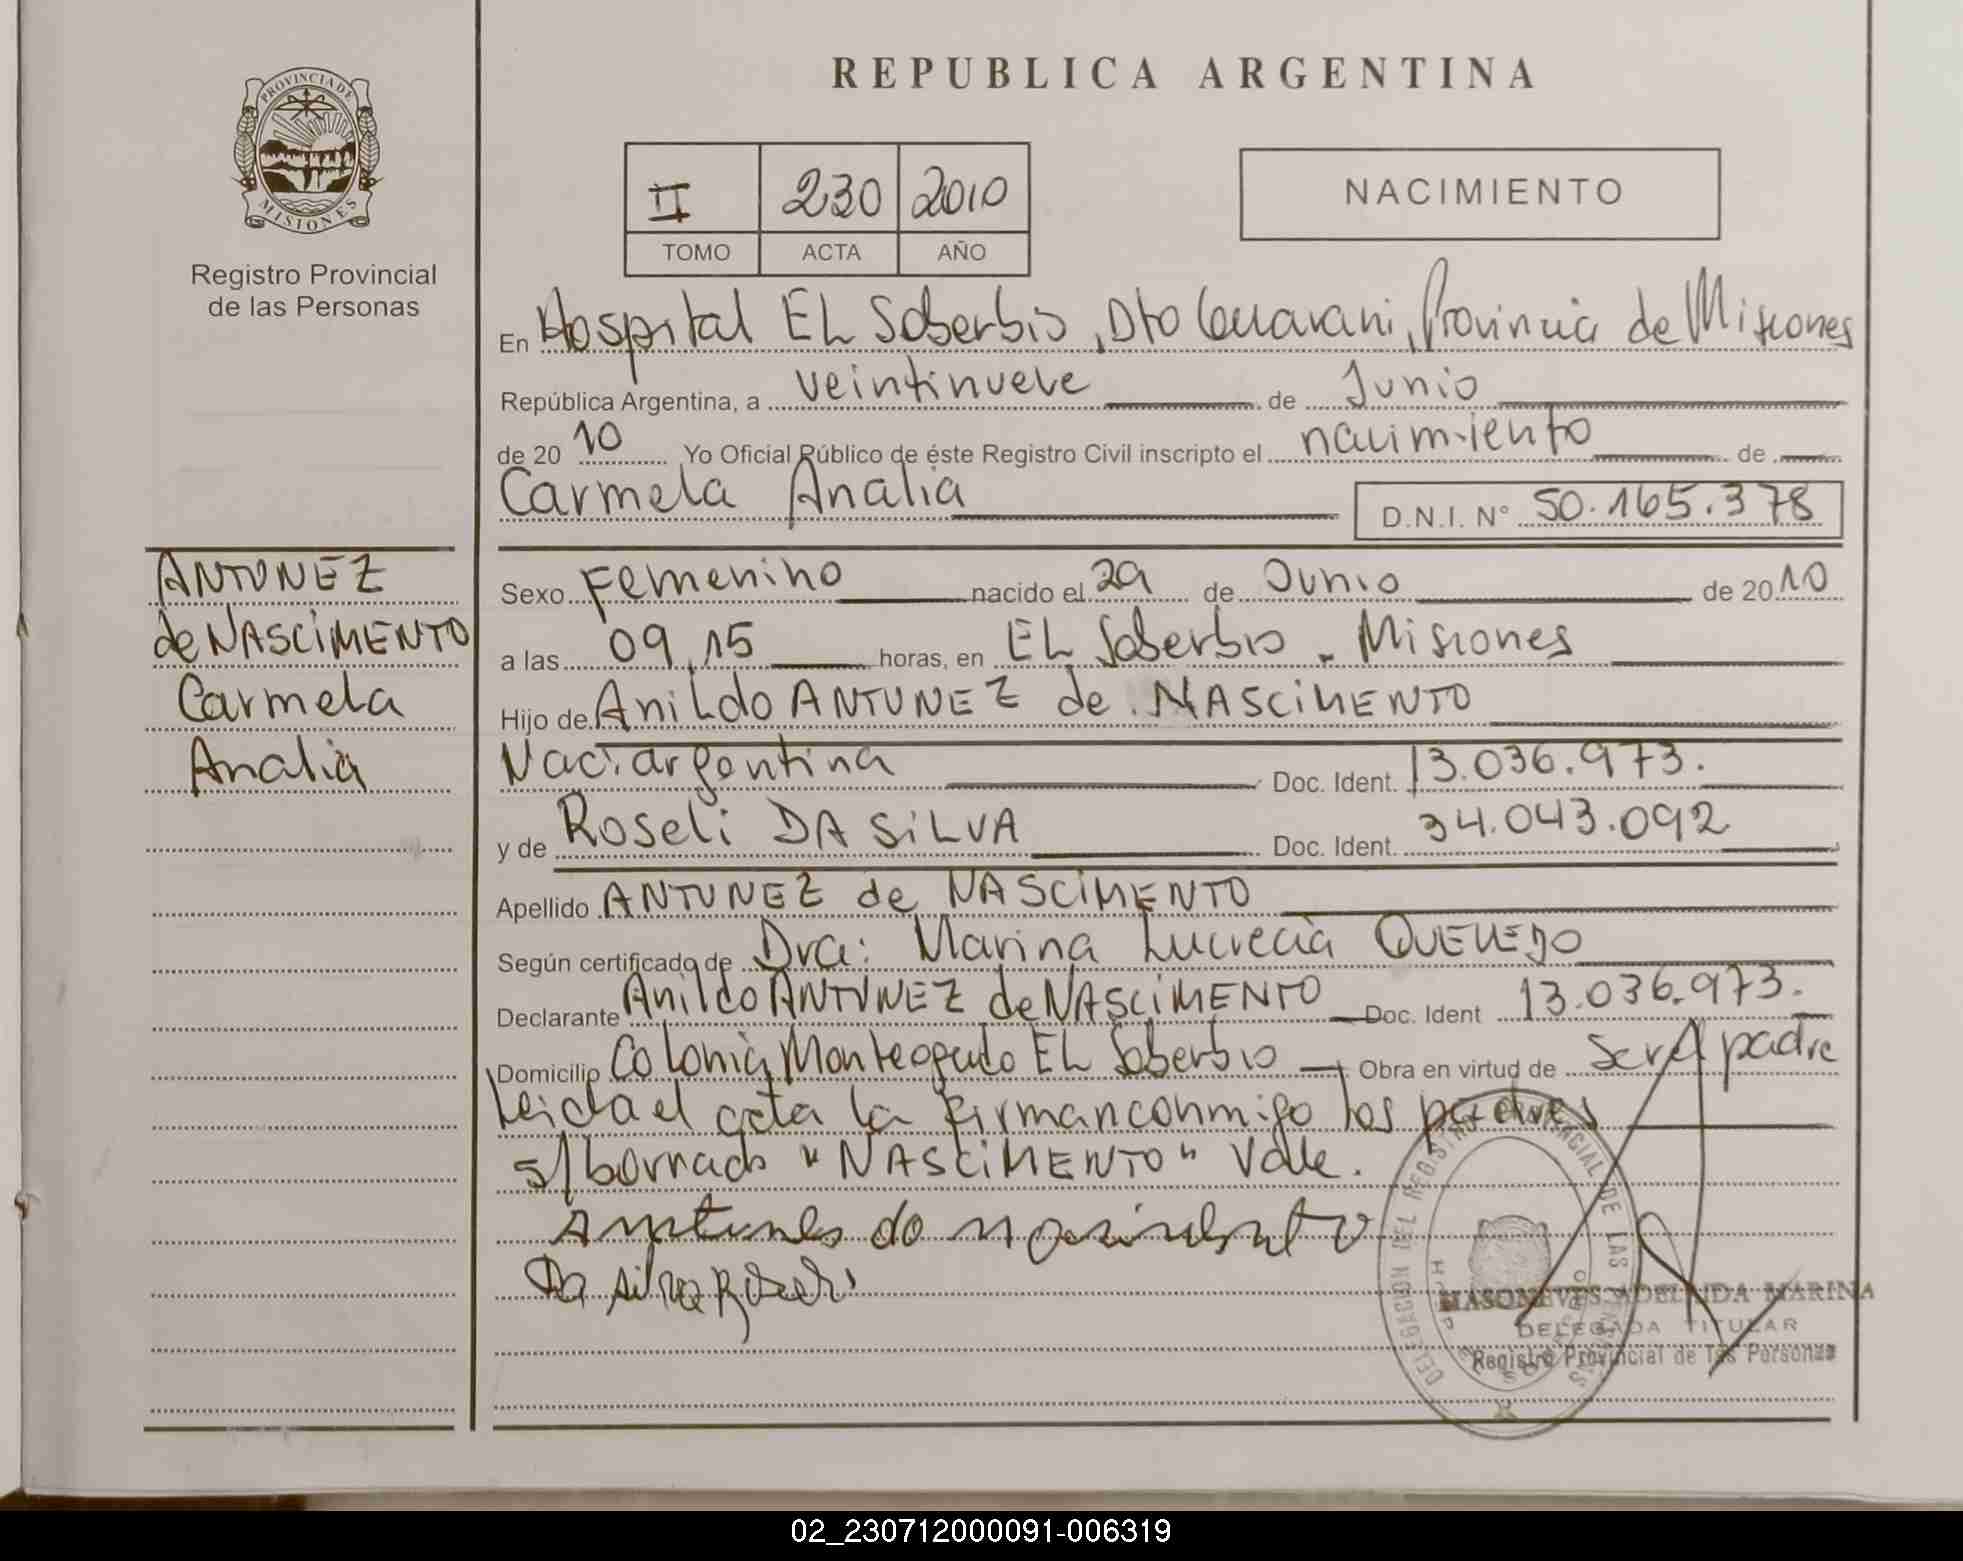 REPUBLICA ARGENTINA
PROVINCIA DE
MISIONES
Registro Provincial
de las Personas
II 230 2010
TOMO ACTA AÑO
NACIMIENTO
En Hospital EL Soberbio, Dto Guarani, Provincia de Misiones
República Argentina, a veintinueve de Junio
de 20 10 Yo Oficial Público de éste Registro Civil inscripto el nacimiento de
Carmela Analia D.N.I. N° 50.165.378
ANTUNEZ
de NASCIMENTO
Carmela
Analia
Sexo Femenino nacido el 29 de Junio de 20 10
a las 09,15 horas, en EL Soberbio - Misiones
Hijo de Anildo ANTUNEZ de NASCIMENTO
Nac: argentina Doc. Ident. 13.036.973.
y de Roseli DA SILVA Doc. Ident. 34.043.092
Apellido ANTUNEZ de NASCIMENTO
Según certificado de Dra: Marina Lucrecia QUEVEDO
Declarante Anildo ANTUNEZ de NASCIMENTO Doc. Ident 13.036.973.
Domicilio Colonia Monteagudo EL Soberbio Obra en virtud de ser el padre
Leida el acta la firman conmigo los padres
s/borrado "NASCIMENTO" Vale.
Antunes do nascimento
Da silva Roseli
MASONEVES ADELAIDA MARINA
DELEGADA TITULAR
Registro Provincial de las Personas
DELEGACION DEL REGISTRO PROVINCIAL DE LAS PERSONAS
02_230712000091-006319